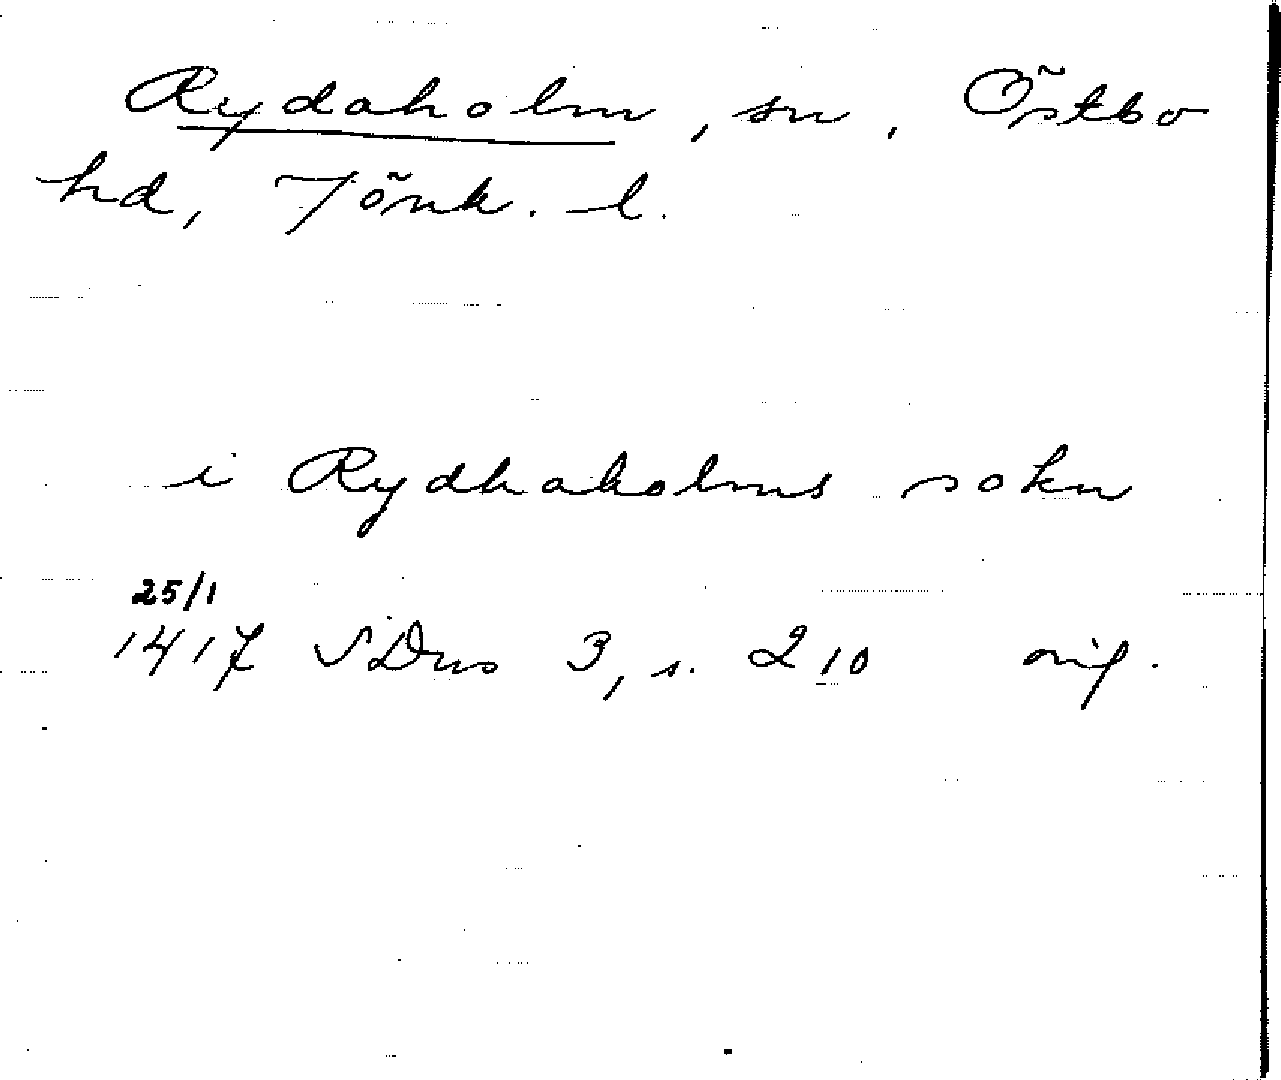 Rydaholm, sn, Östbo
hd, Jönk. l.
i Rydhaholms sokn
25/1
1417 SDns 3, s. 210 orig.